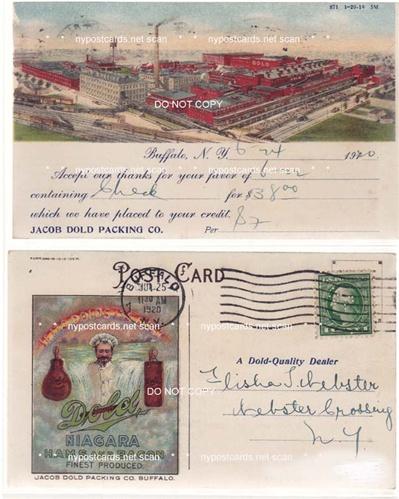 871 1-20-14 5M
nypostcards.net scan
nypostcards.net scan
DOLD
nypostcards.net scan
nypostcards.net scan
DO NOT COPY
nypostcards.net scan
nypostcards.net scan
Buffalo, N. Y. 6-24 1920
Accept our thanks for your favor of 6/22
containing Check for $38 00
which we have placed to your credit.
JACOB DOLD PACKING CO. Per
nypostcards.net scan
nypostcards.net scan
POST CARD
BUFFALO
JUN 25
1130 AM
1920
N.Y.
nypostcards.net scan
nypostcards.net scan
A Dold-Quality Dealer
DO NOT COPY
Elisha T. Webster
Webster Crossing
N Y
Dold
NIAGARA
HAMS AND BACON
FINEST PRODUCED
nypostcards.net scan
nypostcards.net scan
JACOB DOLD PACKING CO. BUFFALO.